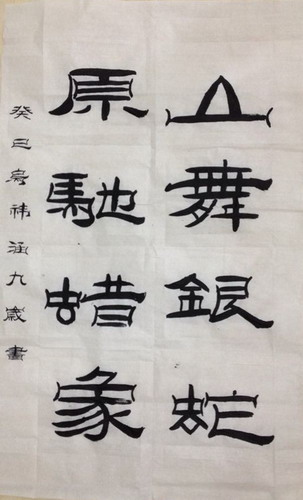 山舞銀蛇
原馳蜡象
癸巳烏祎涵九歲書